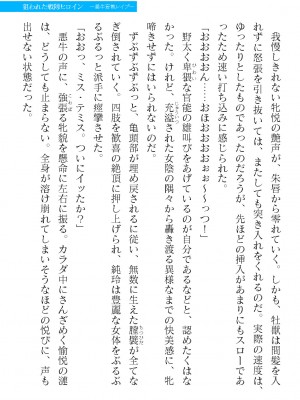 狙われた戦闘ヒロイン
我慢しきれない牝悦の艶声が、朱唇から零れていく。しかも、牡獣は間髪を入
れずに怒張を引き抜いては、またしても突き入れをくれるのだ。実際の速度は、
ゆったりとしたものであったのだろうが、先ほどの挿入があまりにもスローであ
ったため速い打ち込みに感じられた。
「おおおおん……おほおおおおぉぉ～～っつ！」
野太く卑猥な官能の雄叫びをあげているのが自分であるなどと、認めたくはな
かった。けれど、充溢された女陰の隅々から轟き渡る異様なまでの快美感に、牝
啼きせずにはいられないのだ。
ずぶずぶずぶっと、亀頭部が埋め戻されるに従い、無数に生えた膣襞が全てな
ぎ倒されていく。四肢を歓喜の塊に押し上げられ、純玲は豊麗な女体をぶるぶ
るぶるっと派手に痙攣させた。
「おおっ、ミス・テミス。ついにイッたか？」
悪牛の声に、強張る牝貌を懸命に左右に振る。カラダ中にさんざめく愉悦の漣
が、どうしても止まらない。全身が溶け崩れてしまいそうなほどの悦びに、声も
出せない状態だった。